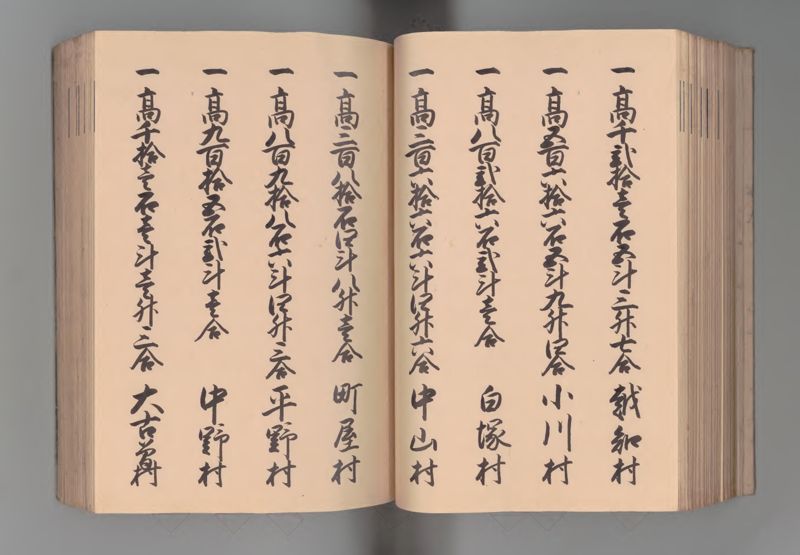 一 高千弐拾壱石五斗三升七合 越知村
一 高五百六拾六石五斗九升四合 小川村
一 高八百弐拾六石弐斗壱合 白塚村
一 高三百六拾六石六斗四升六合 中山村
一 高三百八拾石四斗八升壱合 町屋村
一 高八百九拾八石六斗四升三合 平野村
一 高九百拾五石弐斗壱合 中野村
一 高千拾壱石壱斗壱升三合 大古曽村